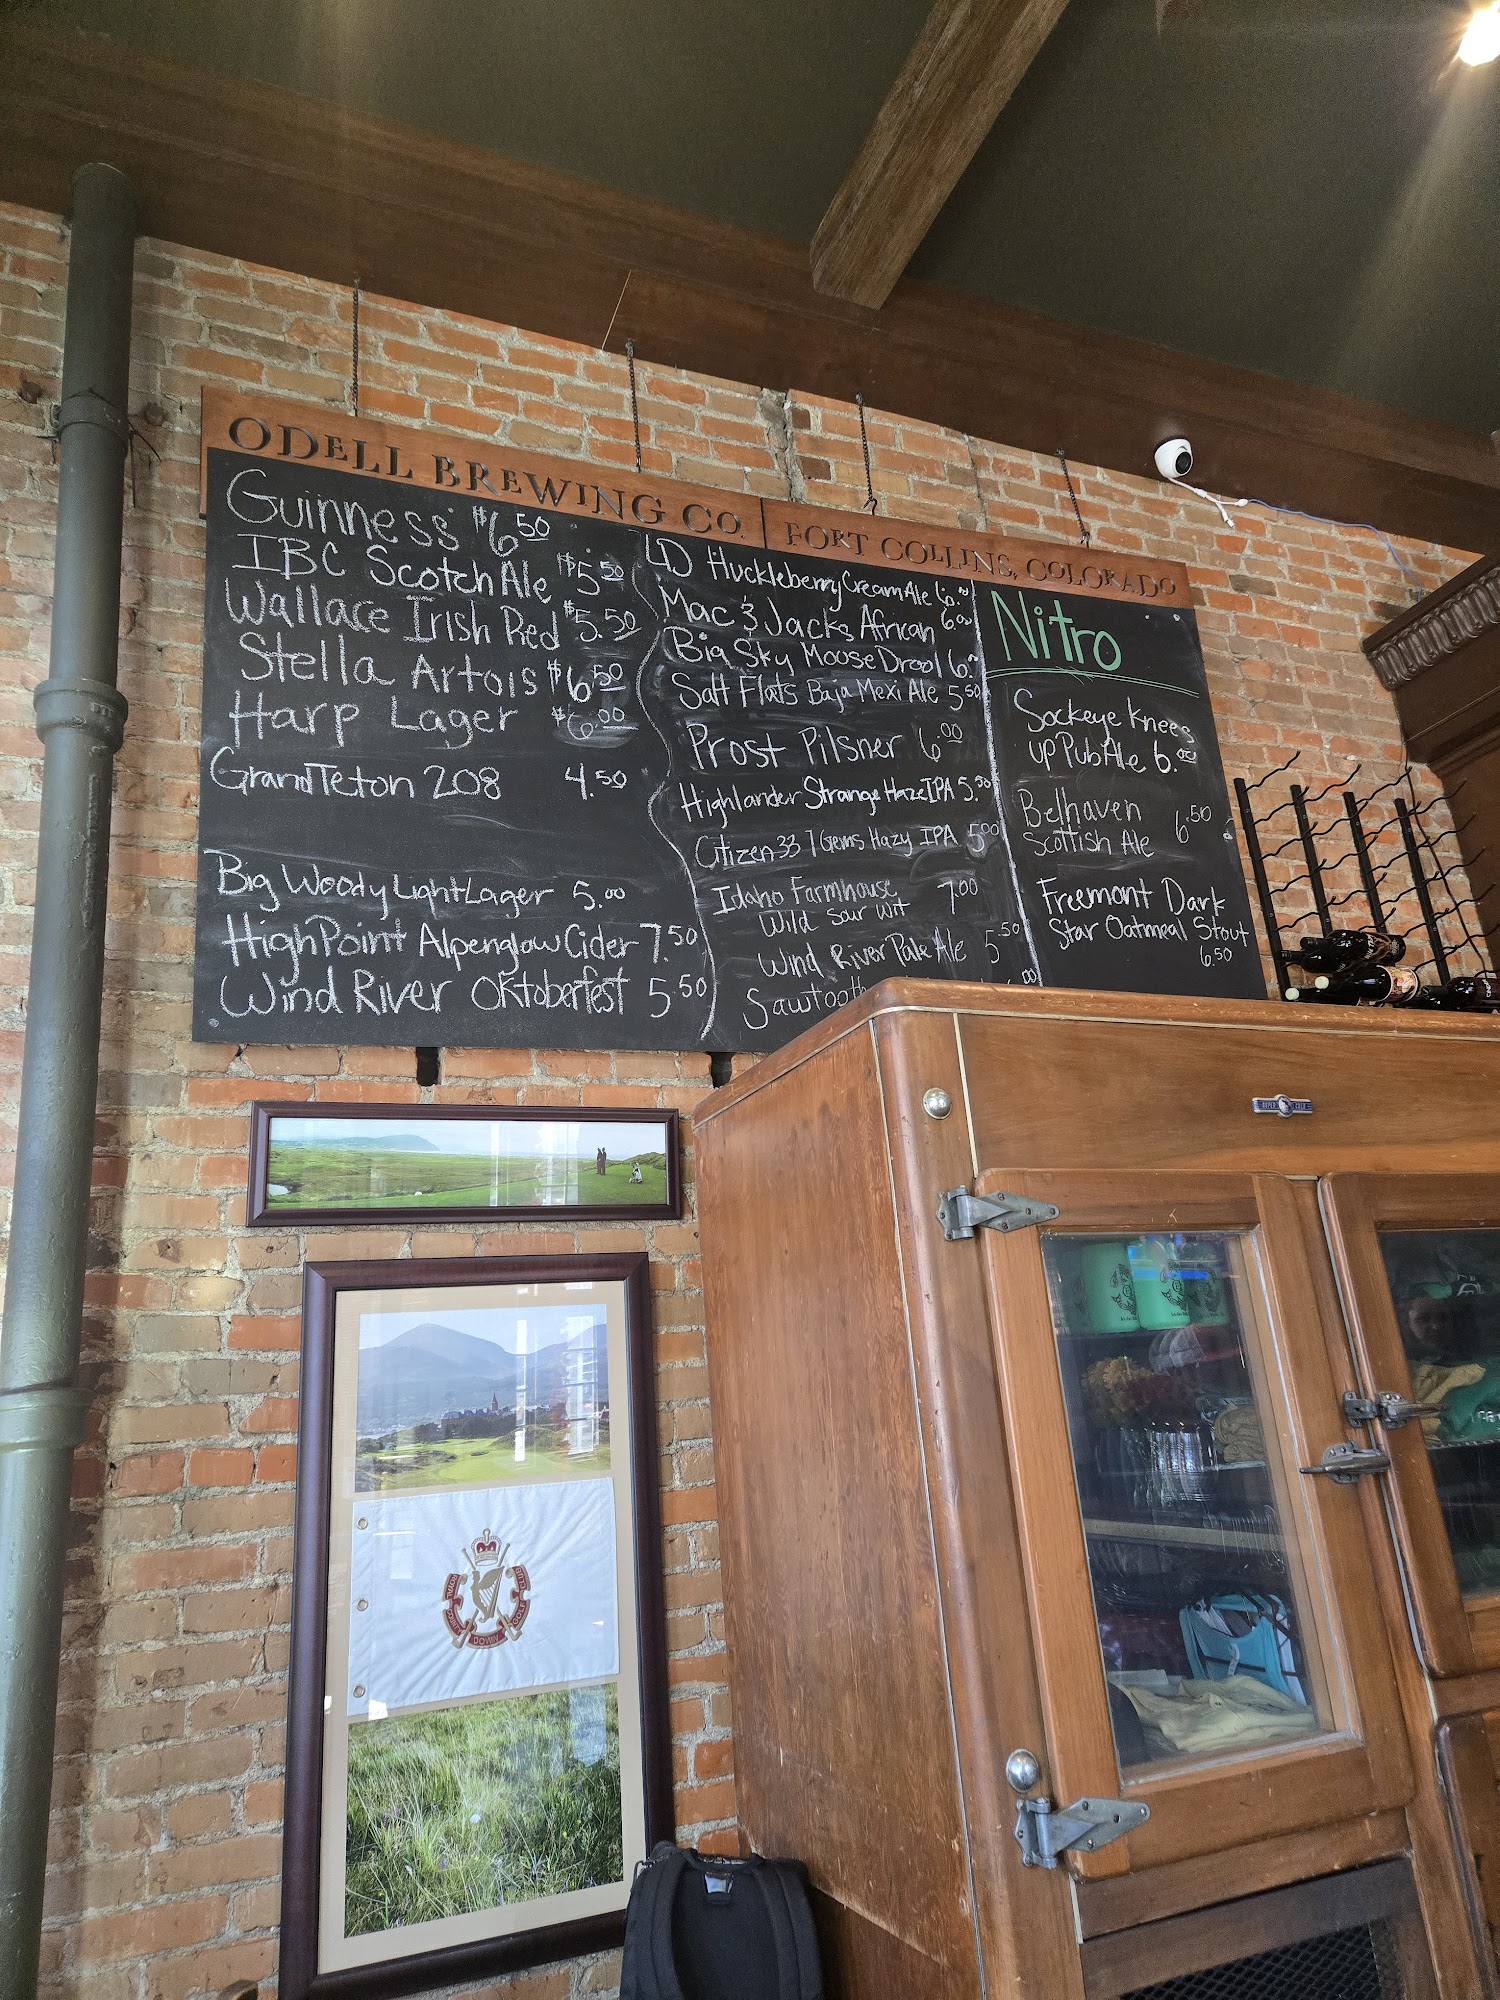 ODELL BREWING CO. FORT COLLINS, COLORADO
Guinness $6.50
IBC Scotch Ale $5.50
Wallace Irish Red $5.50
Stella Artois $6.50
Harp Lager $6.00
Grand Teton 208 4.50
Big Woody Light Lager 5.00
High Point Alpenglow Cider 7.50
Wind River Oktoberfest 5.50
LD Huckleberry Cream Ale 6.00
Mac & Jacks African 6.00
Big Sky Moose Drool 6.00
Salt Flats Baja Mexi Ale 5.50
Prost Pilsner 6.00
Highlander Strange Haze IPA 5.50
Citizen 33 7 Gems Hazy IPA 5.00
Idaho Farmhouse 7.00
Wild Sour Wit
Wind River Pale Ale 5.50
Sawtooth
Nitro
Sockeye Knees
up Pub Ale 6.00
Belhaven
Scottish Ale 6.50
Freemont Dark
Star Oatmeal Stout
6.50
ROYAL COUNTY DOWN GOLF CLUB